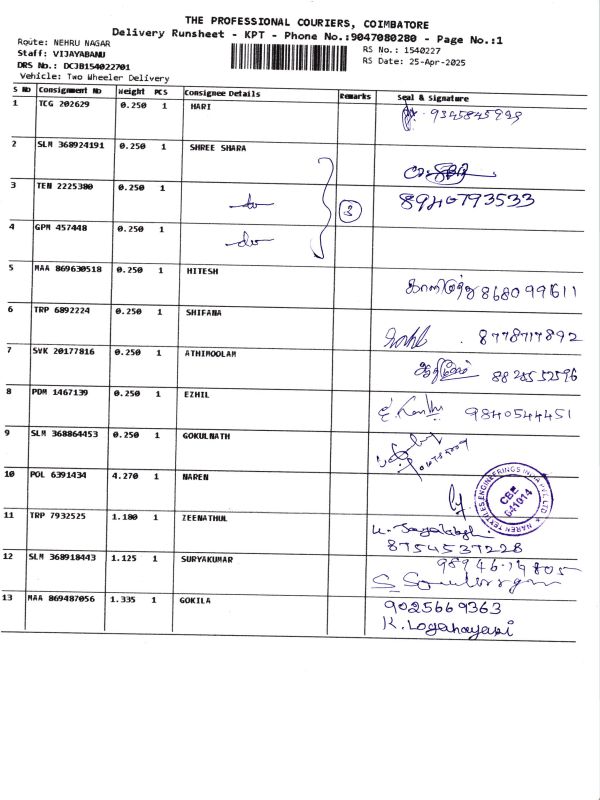 THE PROFESSIONAL COURIERS, COIMBATORE
Delivery Runsheet - KPT - Phone No.:9047080280 - Page No.:1
Route: NEHRU NAGAR
Staff: VIJAYABANU
DRS No.: DCJB154022701
Vehicle: Two Wheeler Delivery
RS No.: 1540227
RS Date: 25-Apr-2025
S No Consignment No Weight PCS Consignee Details Remarks Seal & Signature
1 TCG 202629 0.250 1 HARI
2 SLM 368924191 0.250 1 SHREE SHARA
3 TEN 2225380 0.250 1 do 3 8940793533
4 GPM 457448 0.250 1 do
5 MAA 869630518 0.250 1 HITESH
6 TRP 6892224 0.250 1 SHIFANA 8778717892
7 SVK 20177816 0.250 1 ATHIMOOLAM
8 PDM 1467139 0.250 1 EZHIL 9840544451
9 SLM 368864453 0.250 1 GOKULNATH
10 POL 6391434 4.270 1 NAREN
NAREN TEXTILES ENGINEERINGS INDIA PVT LTD
CBE
641014
11 TRP 7932525 1.180 1 ZEENATHUL
8754537228
12 SLM 368918443 1.125 1 SURYAKUMAR
13 MAA 869487056 1.335 1 GOKILA 9025669363
K. Logahayasi